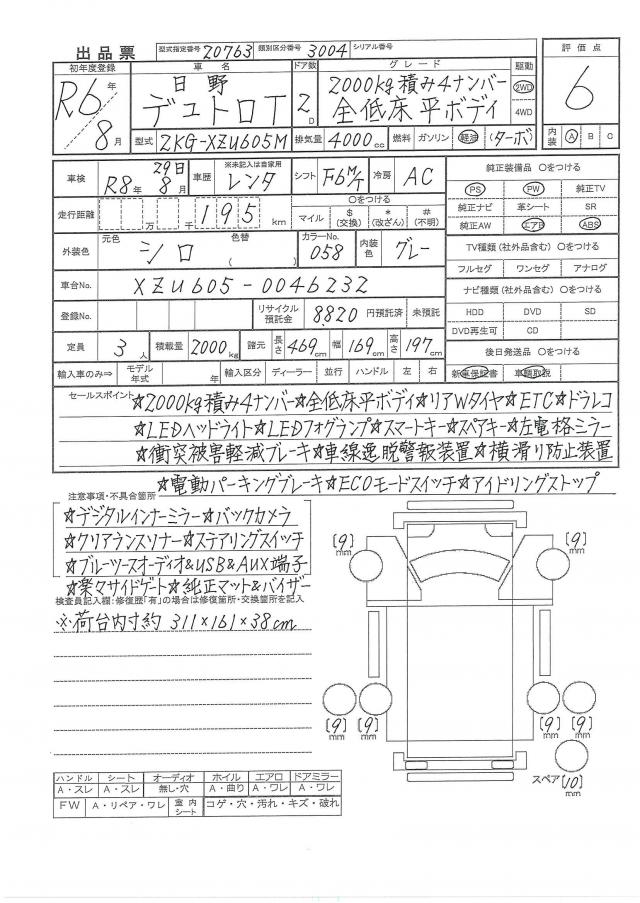 出品票 型式指定番号 20763 類別区分番号 3004 シリアル番号
初年度登録 車名 ドア数 グレード 駆動 評価点
R6年 8月 日野 デュトロT 2D 2000kg積み4ナンバー 全低床平ボディ 2WD 4WD 6
型式 2KG-XZU605M 排気量 4000cc 燃料 ガソリン 軽油 (ターボ) 内装 A B C
車検 R8年 29日 8月 車歴 ※未記入は自家用 レンタ シフト F6M/T 冷房 AC 純正装備品 〇をつける
PS PW 純正TV
走行距離 万 千 195 km 〇をつける マイル $(交換) *(改ざん) #(不明) 純正ナビ 革シート SR
純正AW エアB ABS
外装色 元色 シロ 色替 ( ) カラーNo. 058 内装色 グレー TV種類(社外品含む)〇をつける
フルセグ ワンセグ アナログ
車台No. XZU605-0046232 ナビ種類(社外品含む)〇をつける
登録No. リサイクル預託金 8820 円預託済 未預託 HDD DVD SD
DVD再生可 CD
定員 3人 積載量 2000kg 諸元 長さ 469cm 幅 169cm 高さ 197cm 後日発送品 〇をつける
輸入車のみ⇒ モデル年式 年 輸入区分 ディーラー 並行 ハンドル 左 右 新車保証書 車輌取説
セールスポイント ☆2000kg積み4ナンバー☆全低床平ボディ☆リアWタイヤ☆ETC☆ドラレコ
☆LEDヘッドライト☆LEDフォグランプ☆スマートキー☆スペアキー☆左電格ミラー
☆衝突被害軽減ブレーキ☆車線逸脱警報装置☆横滑り防止装置
☆電動パーキングブレーキ☆ECOモードスイッチ☆アイドリングストップ
注意事項・不具合箇所
☆デジタルインナーミラー☆バックカメラ
☆クリアランスソナー☆ステアリングスイッチ
☆ブルーツースオーディオ&USB&AUX端子
☆楽々サイドゲート☆純正マット&バイザー
検査員記入欄:修復歴「有」の場合は修復箇所・交換箇所を記入
※荷台内寸約 311×161×38cm
[9]mm [9]mm
[9]mm [9]mm [9]mm [9]mm
スペア [10]mm
ハンドル シート オーディオ ホイル エアロ ドアミラー
A・スレ A・スレ 無し・穴 A・曲り A・ワレ A・ワレ
FW A・リペア・ワレ 室内シート コゲ・穴・汚れ・キズ・破れ